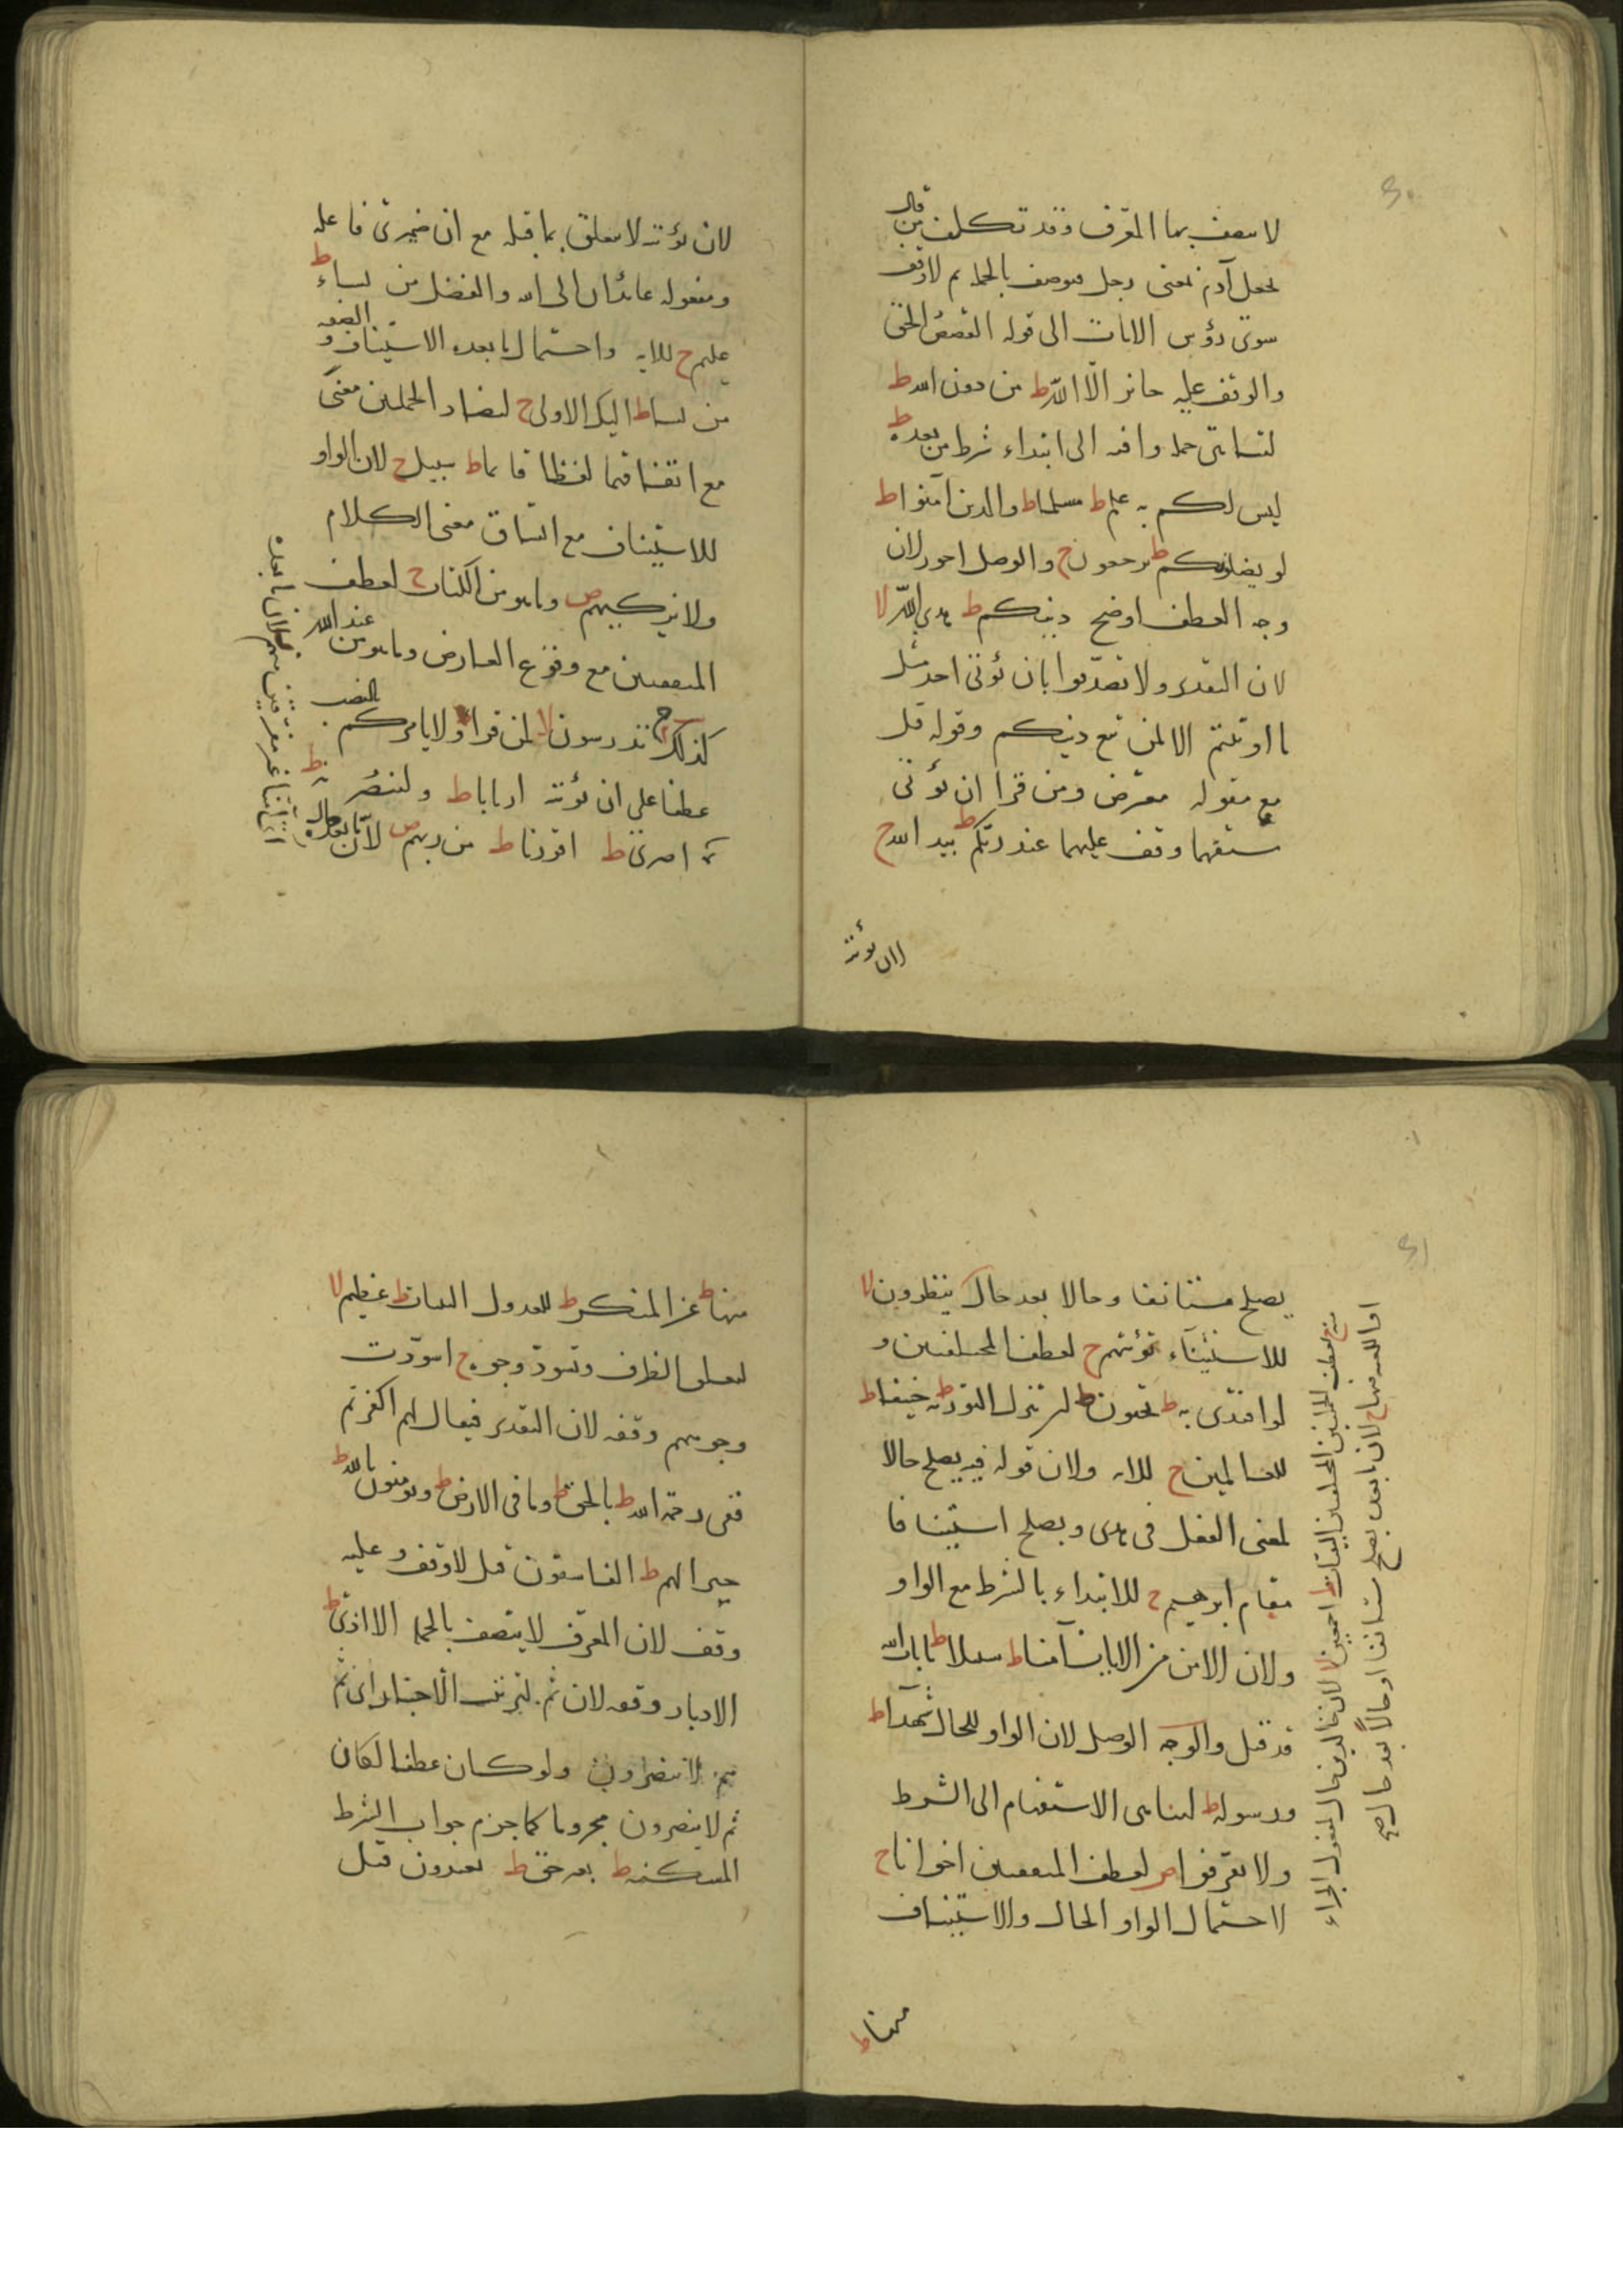 لا يتصف بها المعرف وقد تكلف من قال
يجعل آدم بمعنى رجل فيوصف بالجملة ثم لا وقف
سوى رؤس الايات الى قوله القصص الحق
والوقف عليه جائز الا الله ط من دون الله ط
لتناهى جملة وافية الى ابتداء شرط من بعده ط
ليس لكم به علم ط مسلما ط والذين آمنوا ط
لو يضلونكم ط يرجعون ح والوصل اجوز لان
وجه العطف اوضح دينكم ط هدى الله لا
لان التقدير ولا تصدقوا بان يؤتى احد مثل
ما اوتيتم الا لمن تبع دينكم وقوله قل
مع مقوله معترض ومن قرا ان يؤتى
مستفهما وقف عليهما عند ربكم ط بيد الله ح
لان يؤتيه
لان يؤتيه لا يتعلق بما قبله مع ان ضميرى فاعله
ومفعوله عائدان الى الله والفضل من يشاء ط
عليم ح للاية واحتمال ما بعده الاستيناف والصفة
من يشا ط اليك الاولى ح لتضاد الجملتين معنى
مع اتفاقهما لفظا قائما ط سبيل ح لان الواو
للاستيناف مع اتساق معنى الكلام
ولا يزكيهم ص وما هو من الكتاب ح لعطف
المتفقتين مع وقوع العارض وما هو من عند الله
كذلك تدرسون لا لمن قرا ولا يامركم بالنصب
عطفا على ان يؤتيه اربابا ط ولتنصرنه ط
اصرى ط اقررنا ط من ربهم ص لان ما بعده حال
اى آمنا غير مفرقين منهم لان ما بعده
يصلح مستانفا وحالا بعد حال ينظرون لا
للاستثناء توبتهم ح لعطف المختلفتين و
لو افتدى به ط تحبون ط تنزل التورية ط حنيفا ط
للعالمين ح للاية ولان قوله فيه يصلح حالا
لمعنى الفعل فى هدى ويصلح استينافا
مقام ابرهيم ح للابتداء بالشرط مع الواو
ولان الامن من الايات آمنا ط سبيلا ط بايات الله
قد قيل والوجه الوصل لان الواو للحال شهداء ط
ورسوله ط لتناهى الاستفهام الى الشرط
ولا تفرقوا ص لعطف المتفقتين اخوانا ح
لاحتمال الواو الحال والاستيناف
منها ط
لعطف الجملتين المختلفتين البينات ط اجمعين لا لان خالدين حال
لان ما بعده يصلح مستانفا او حالا بعد حال صح
منها ط عن المنكر ط للعدول البينات ط عظيم لا
لتعلق الظرف وتسود وجوه ح اسودت
وجوههم وقفه لان التقدير فيقال لهم اكفرتم
ففى رحمة الله ط بالحق ط وما فى الارض ط وتومنون بالله ط
خيرا لهم ط الفاسقون قيل لا وقف وعليه
وقف لان المعرف لا يتصف بالجملة الا اذى ط
الادبار وقفه لان ثم لترتيب الاخبار اى ثم
هم لا ينصرون ولو كان عطفا لكان
ثم لا ينصرون مجزوما كما جزم جواب الشرط
المسكنة ط بغير حق ط يعتدون قيل